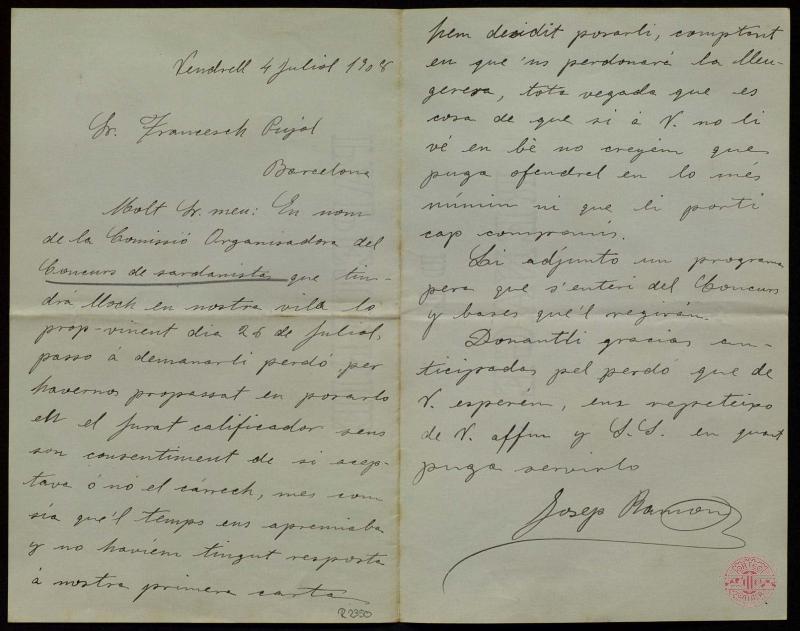 Vendrell 4 Juliol 1908
Sr. Francesch Pujol
Barcelona
Molt Sr. meu: En nom
de la Comissió Organisadora del
Concurs de sardanistas que tin-
drá lloch en nostra vila lo
prop-vinent dia 26 de Juliol,
passo á demanarli perdó per
havernos propassat en posarlo
en el Jurat calificador sens
son consentiment de si acep-
tava ó nó el cárrech, mes com
sía qué'l temps ens apremiaba
y no havíem tingut resposta
á nostra primera carta
hem desidit posarli, comptant
en que 'ns perdonará la lleu-
geresa, tota vegada que es
cosa de que si á V. no li
vé en bè no creyém que
puga ofendrel en lo més
mínim ni que li porti
cap compromís.
Li adjunto un programa
pera que s'enteri del Concurs
y bases qué'l regirán.
Donantli gracias an-
ticipadas pel perdó que de
V. esperém, ens repeteixo
de V. affm y S.S. en quant
puga servirlo
Josep Ramon
R 2350
ORFEÓ
CATALÀ